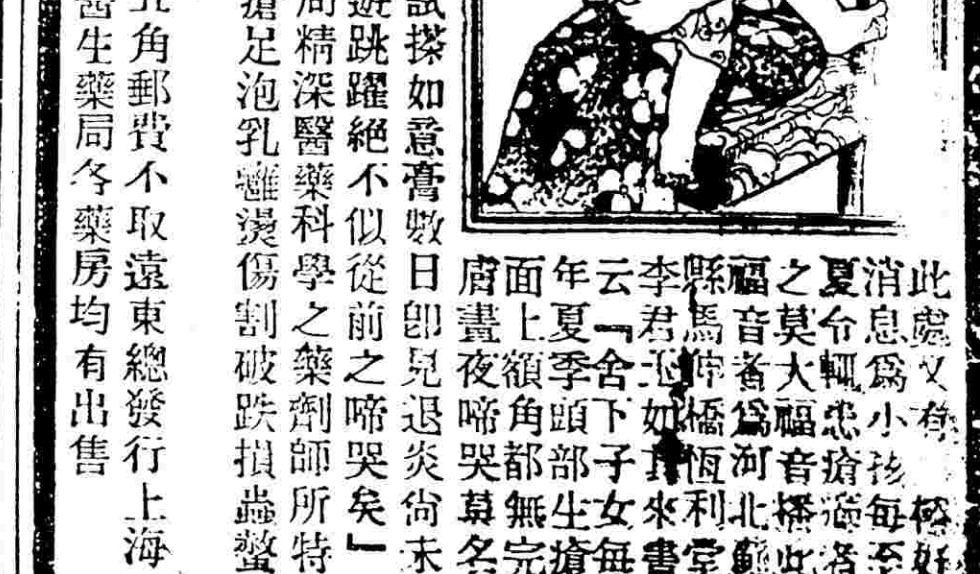 此處又有極好
消息爲小孩每至
夏令輒患瘡癤者
之莫大福音接此
福音者爲河北薊
縣馬伸橋恆利堂
李君玉如其來書
云『舍下子女每
年夏季頭部生瘡
面上額角都無完
膚晝夜啼哭莫名
試搽如意膏數日卽見退炎尙未
遊跳躍絕不似從前之啼哭矣』
局精深醫藥科學之藥劑師所特
瘡足泡乳癰燙傷割破跌損蟲螫
角郵費不取遠東總發行上海
醫生藥局各藥房均有出售